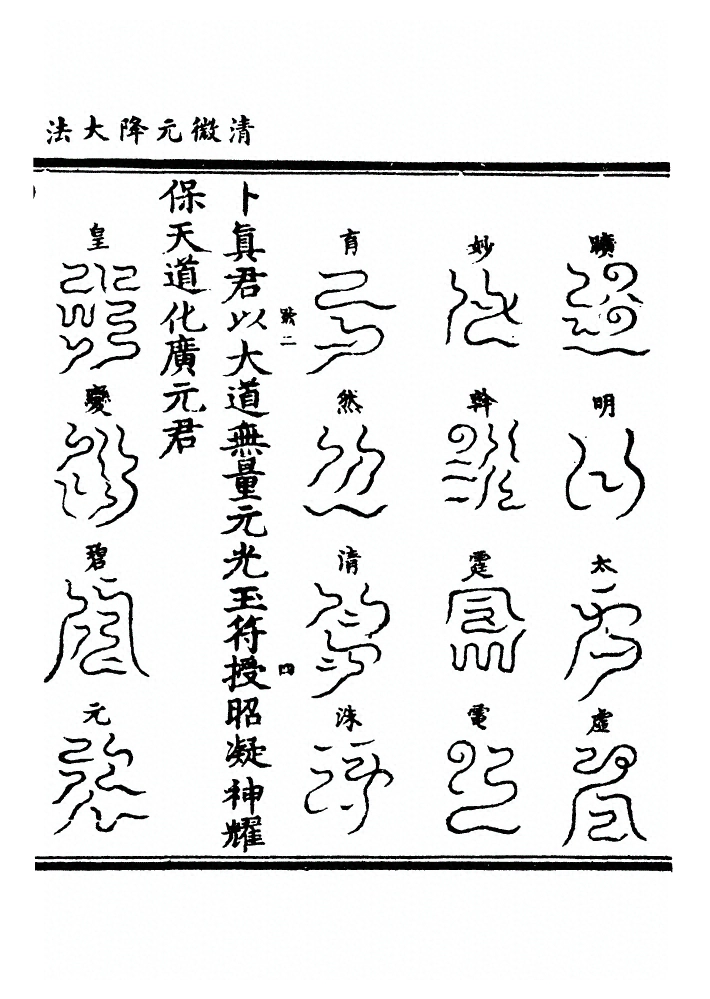 清微元降大法
曠明太虛
妙幹霆電
育然清洙
二
四
卜眞君以大道無量元光玉符授昭凝神耀
保天道化廣元君
皇變碧元